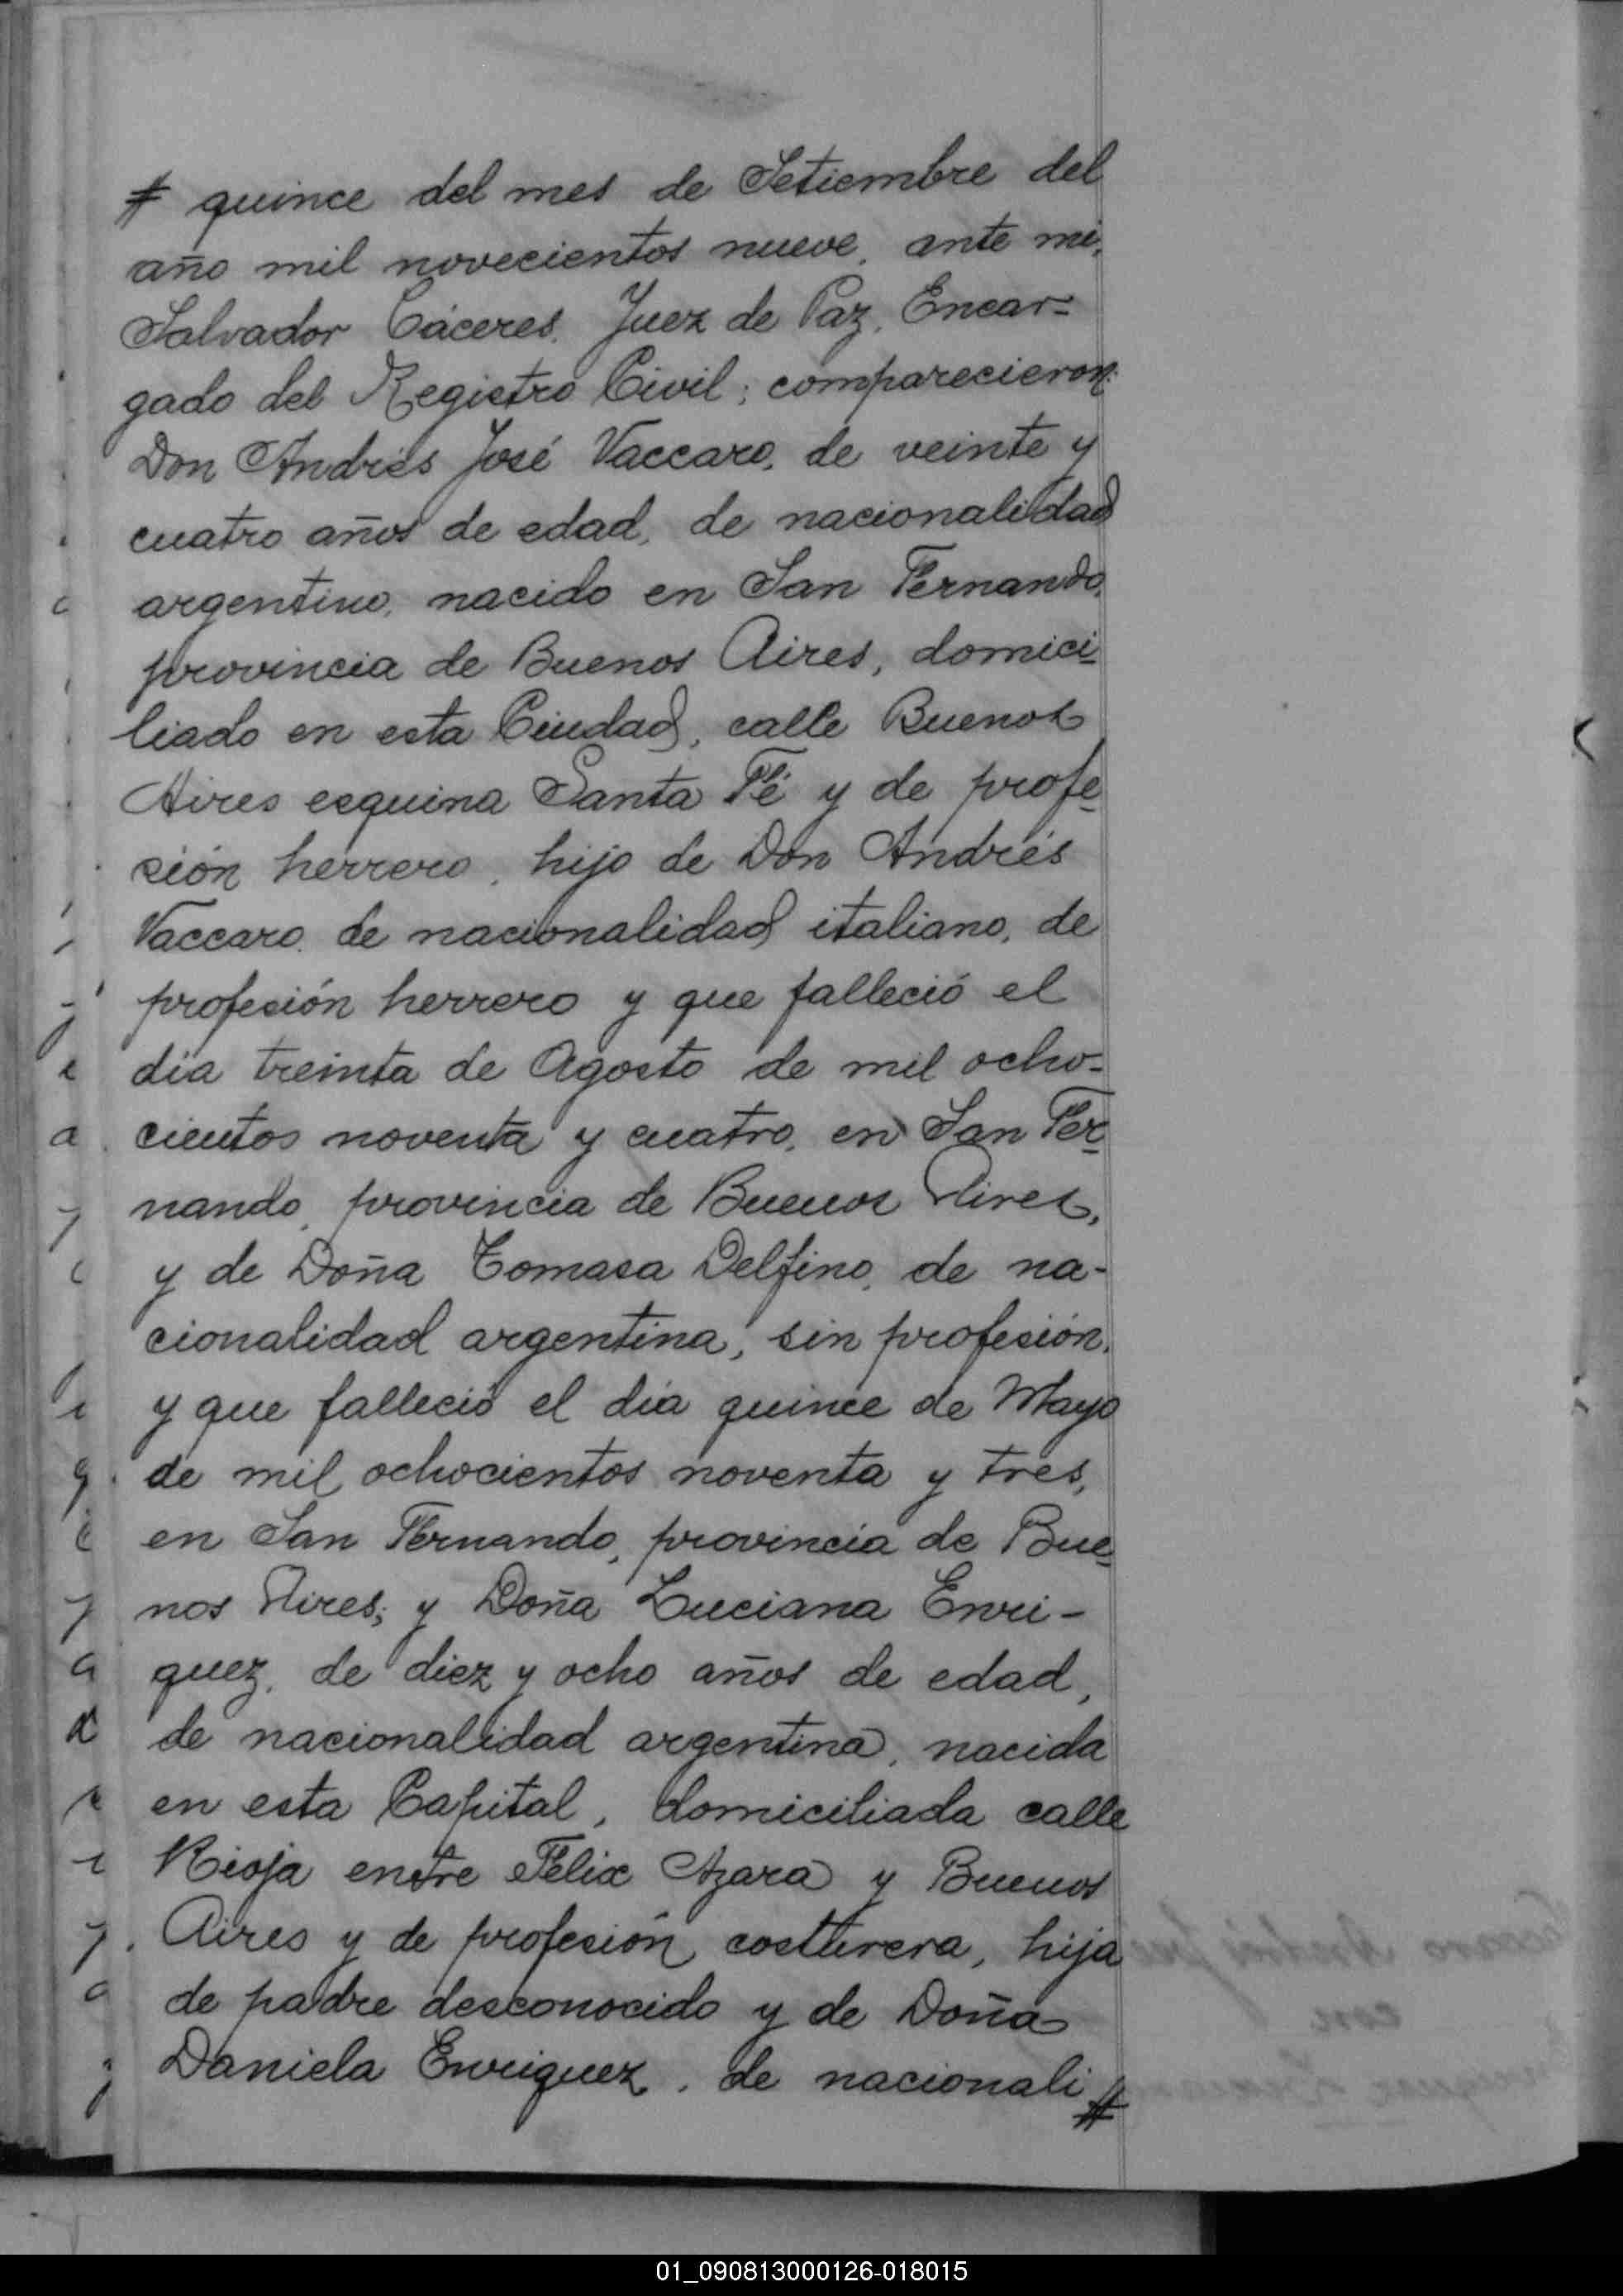 # quince del mes de Setiembre del
año mil novecientos nueve, ante mi,
Salvador Cáceres, Juez de Paz, Encar-
gado del Registro Civil; comparecieron:
Don Andrés José Vaccaro, de veinte y
cuatro años de edad, de nacionalidad
argentino, nacido en San Fernando,
provincia de Buenos Aires, domici-
liado en esta Ciudad, calle Buenos
Aires esquina Santa Fé y de profe-
sión herrero, hijo de Don Andrés
Vaccaro, de nacionalidad italiano, de
profesión herrero y que falleció el
día treinta de Agosto de mil ocho-
cientos noventa y cuatro, en San Fer-
nando, provincia de Buenos Aires,
y de Doña Tomasa Delfino, de na-
cionalidad argentina, sin profesión,
y que falleció el día quince de Mayo
de mil ochocientos noventa y tres,
en San Fernando, provincia de Bue-
nos Aires; y Doña Luciana Enri-
quez, de diez y ocho años de edad,
de nacionalidad argentina, nacida
en esta Capital, domiciliada calle
Rioja entre Felix Azara y Buenos
Aires y de profesión costurera, hija
de padre desconocido y de Doña
Daniela Enriquez, de nacionali #
01_090813000126-018015